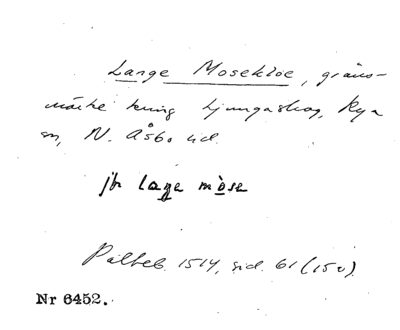 Lange Mosekloe, gräns-
märke kring Ljungaskog, Rya
sn, N. Åsbo hd.
jfr lage mose
Pålteb. 1514, sid. 61 (15 v).
Nr 6452.